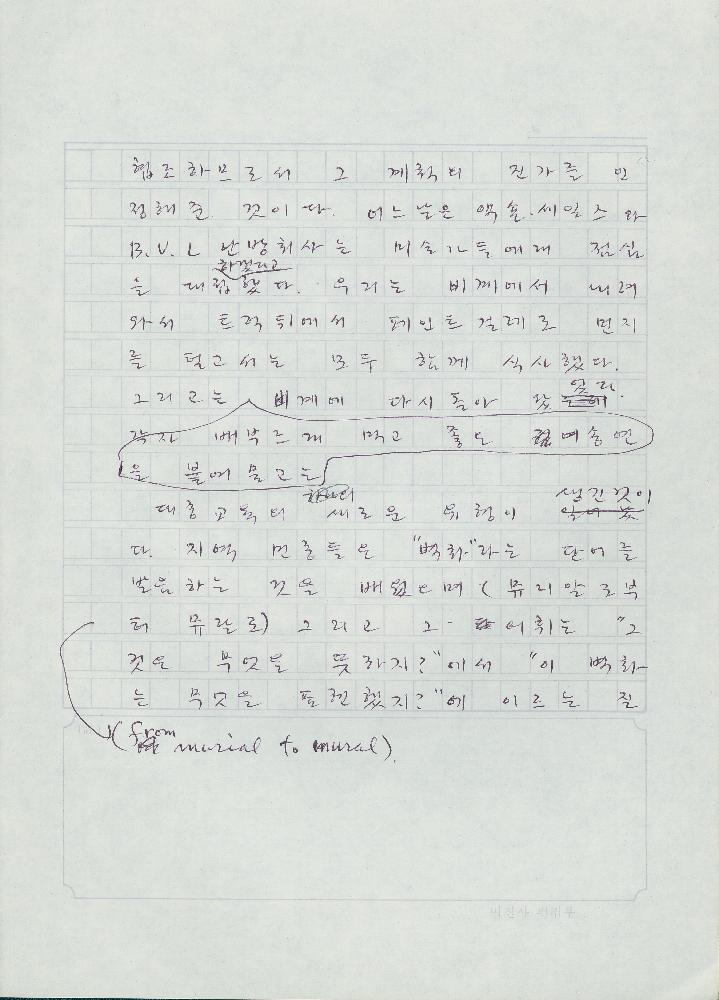 협조하므로서 그 계획의 진가를 인
정해준 것이다. 어느날은 액손.세일즈와
B.V.L 난방회사는 미술가들에게 점심
하겠다고
을 대접했다. 우리는 비계에서 내려
와서 트럭뒤에서 페인트 걸레로 먼지
를 털고서는 모두 함께 식사했다.
었다.
그리고는 비계에 다시 돌아 갔
각자 배부르게 먹고 좋은 여송연
을 붙여 물고는
하나의 생긴것이
대중교육의 새로운 유형이
다. 지역 민중들은 "벽화"라는 단어를
발음하는 것을 배웠으며 (뮤리알로부
터 뮤랄로) 그리고 그 어휘는 "그
것은 무엇을 뜻하지?"에서 "이 벽화
는 무엇을 표현했지?"에 이르는 질
(from murial to mural).